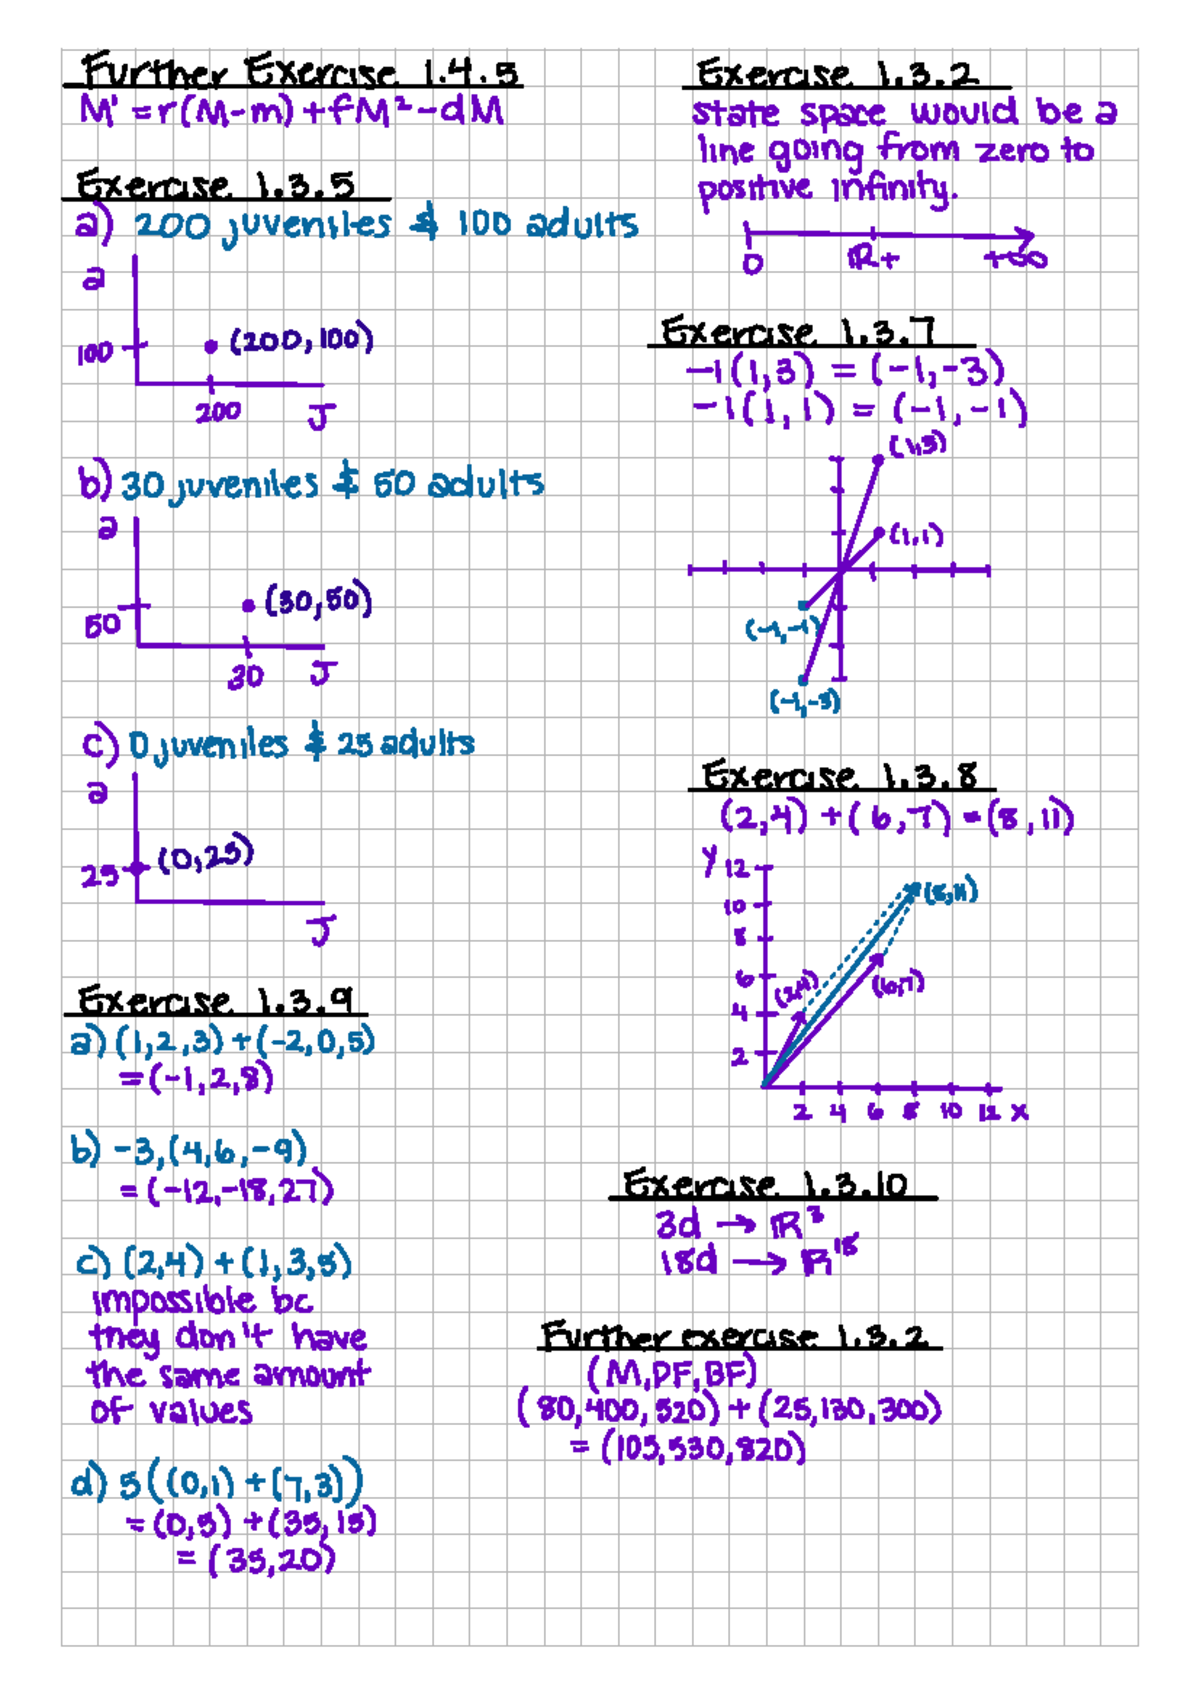 Further Exercise 1.4.5
M' = r(M-m) + fM² - dM
Exercise 1.3.5
a) 200 juveniles & 100 adults
a
100
(200,100)
200
J
b) 30 juveniles & 50 adults
a
50
(30,50)
30
J
c) 0 juveniles & 25 adults
a
25
(0,25)
J
Exercise 1.3.9
a) (1,2,3) + (-2,0,5)
= (-1,2,8)
b) -3,(4,6,-9)
= (-12,-18,27)
c) (2,4) + (1,3,5)
impossible bc
they don't have
the same amount
of values
d) 5((0,1) + (7,3))
= (0,5) + (35,15)
= (35,20)
Exercise 1.3.2
state space would be a
line going from zero to
positive infinity.
0 R+ +∞
Exercise 1.3.7
-1(1,3) = (-1,-3)
-1(1,1) = (-1,-1)
(1,3)
(1,1)
(-1,-1)
(-1,-3)
Exercise 1.3.8
(2,4) + (6,7) = (8,11)
y 12
10
8
6
4
2
(8,11)
(2,4)
(6,7)
2 4 6 8 10 12 x
Exercise 1.3.10
3d → ℝ³
18d → ℝ¹⁸
Further exercise 1.3.2
(M,PF,BF)
(80,400,520) + (25,130,300)
= (105,530,820)